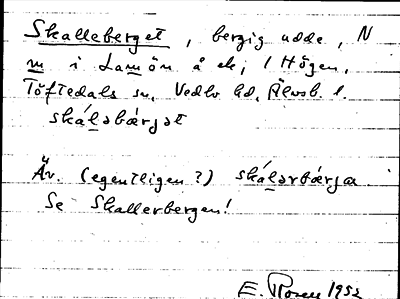 Skalleberget, bergig udde, N
m i Lamön å ek, 1 Högen,
Töftedals sn, Vedbo hd, Älvsb. l.
skáləbárjət
Äv. (egentligen?) skálərbárja
Se Skallerbergen!
E. Rosen 1952